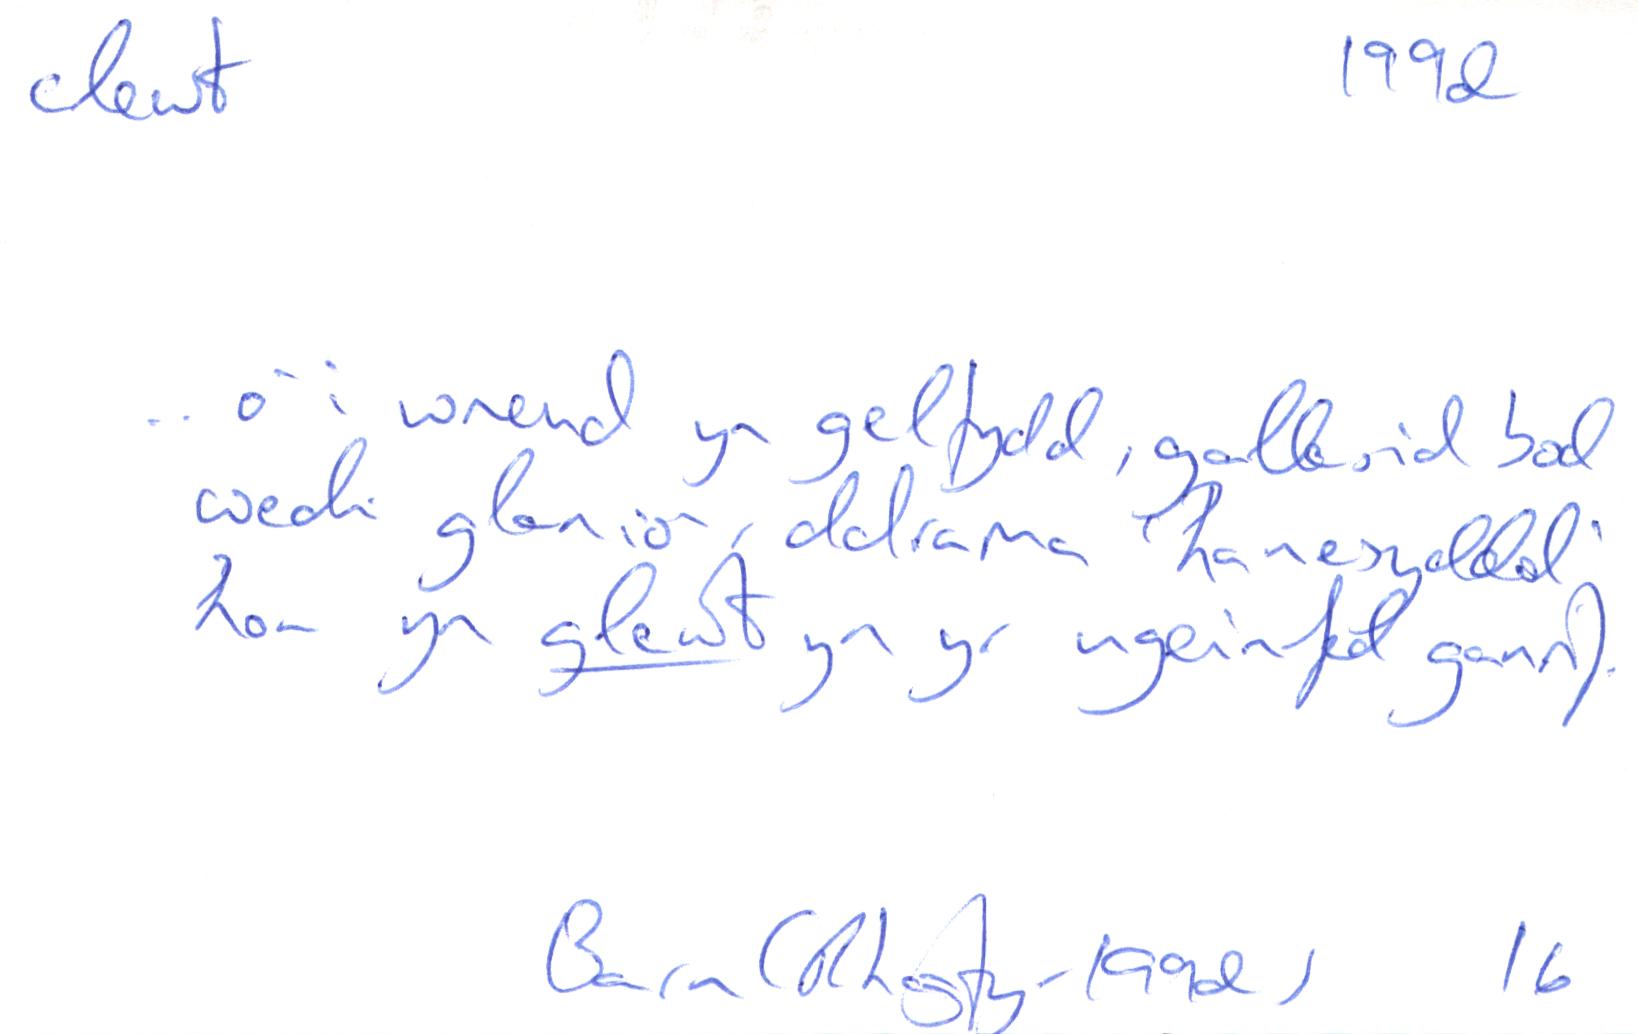 clewt 1992
... o'i wneud yn gelfydd, gallesid bod
wedi glanio'r ddrama 'hanesyddol'
hon yn glewt yn yr ugeinfed ganrif.
Barn (Rhagfyr 1992) 16